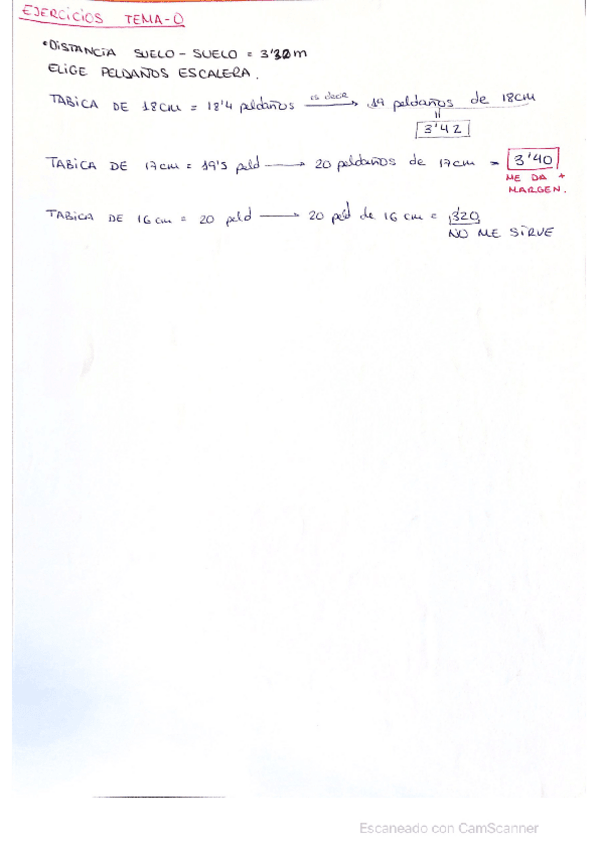 EJERCICIOS TEMA-0
•DISTANCIA SUELO - SUELO = 3'32m
ELIGE PELDAÑOS ESCALERA.
TABICA DE 18cm = 18'4 peldaños es decir → 19 peldaños de 18cm
=
3'42
TABICA DE 17cm = 19's peld → 20 peldaños de 17cm = 3'40
ME DA +
MARGEN.
TABICA DE 16 cm = 20 peld → 20 peld de 16 cm = 3'20
NO ME SIRVE
Escaneado con CamScanner